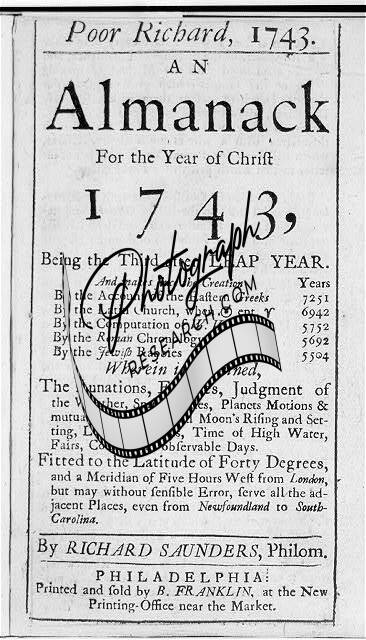 Poor Richard, 1743.
AN
Almanack
For the Year of Chriſt
1743,
Being the Third LEAP YEAR.
And the Creation Years
By the Account of the Eaſtern Greeks 7251
By the Latin Church, when ent. ♈ 6942
By the Computation of 5752
By the Roman Chronology 5692
By the Jewiſh Rabbies 5504
Wherein is
The Lunations, Judgment of
the Planets Motions &
mutual Moon's Riſing and Set-
ting, Time of High Water,
Fairs, obſervable Days.
Fitted to the Latitude of Forty Degrees,
and a Meridian of Five Hours Weſt from London,
but may without ſenſible Error, ſerve all the ad-
jacent Places, even from Newfoundland to South-
Carolina.
By RICHARD SAUNDERS, Philom.
PHILADELPHIA:
Printed and ſold by B. FRANKLIN, at the New
Printing-Office near the Market.
Photograph
RESEARCH.COM